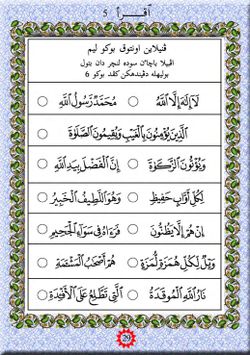 اقرأ 5
ڤنيلاين اونتوق بوكو ليم
اڤبيلا باچاٴن سوده لنچر دان بتول
بوليهله دڤيندهكن كڤد بوكو 6
لَآ إِلَهَ إِلَّا اللَّهُ ○ مُحَمَّدٌ رَسُولُ اللَّهِ ○
الَّذِينَ يُؤْمِنُونَ بِالْغَيْبِ وَيُقِيمُونَ الصَّلَوٰةَ
وَيُؤْتُونَ الزَّكَوٰةَ ○ إِنَّ الْفَضْلَ بِيَدِ اللَّهِ ○
لِكُلِّ أَوَّابٍ حَفِيظٍ ○ وَهُوَ اللَّطِيفُ الْخَبِيرُ ○
إِنْ هُمْ إِلَّا يَظُنُّونَ ○ فَرَءَاهُ فِي سَوَآءِ الْجَحِيمِ ○
وَيْلٌ لِكُلِّ هُمَزَةٍ لُمَزَةٍ ○ هُمْ أَصْحَابُ الْمَشْئَمَةِ ○
نَارُ اللَّهِ الْمُوقَدَةُ ○ الَّتِي تَطَّلِعُ عَلَى الْأَفْئِدَةِ ○
29